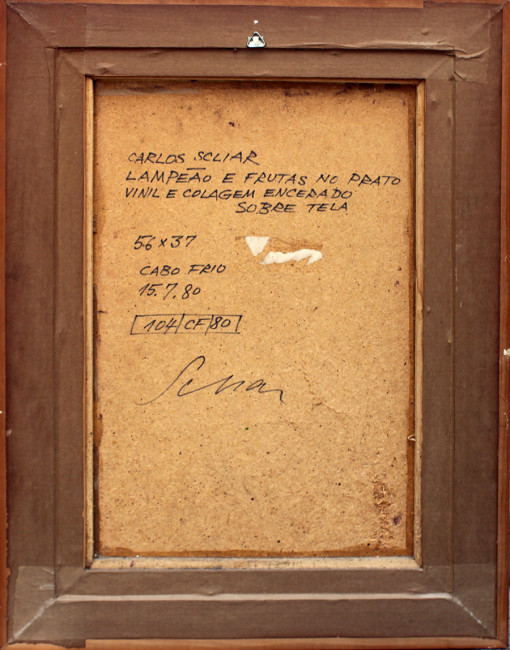 CARLOS SCLIAR
LAMPEÃO E FRUTAS NO PRATO
VINIL E COLAGEM ENCERADO
SOBRE TELA
56x37
CABO FRIO
15.7.80
104|CF|80
Scliar